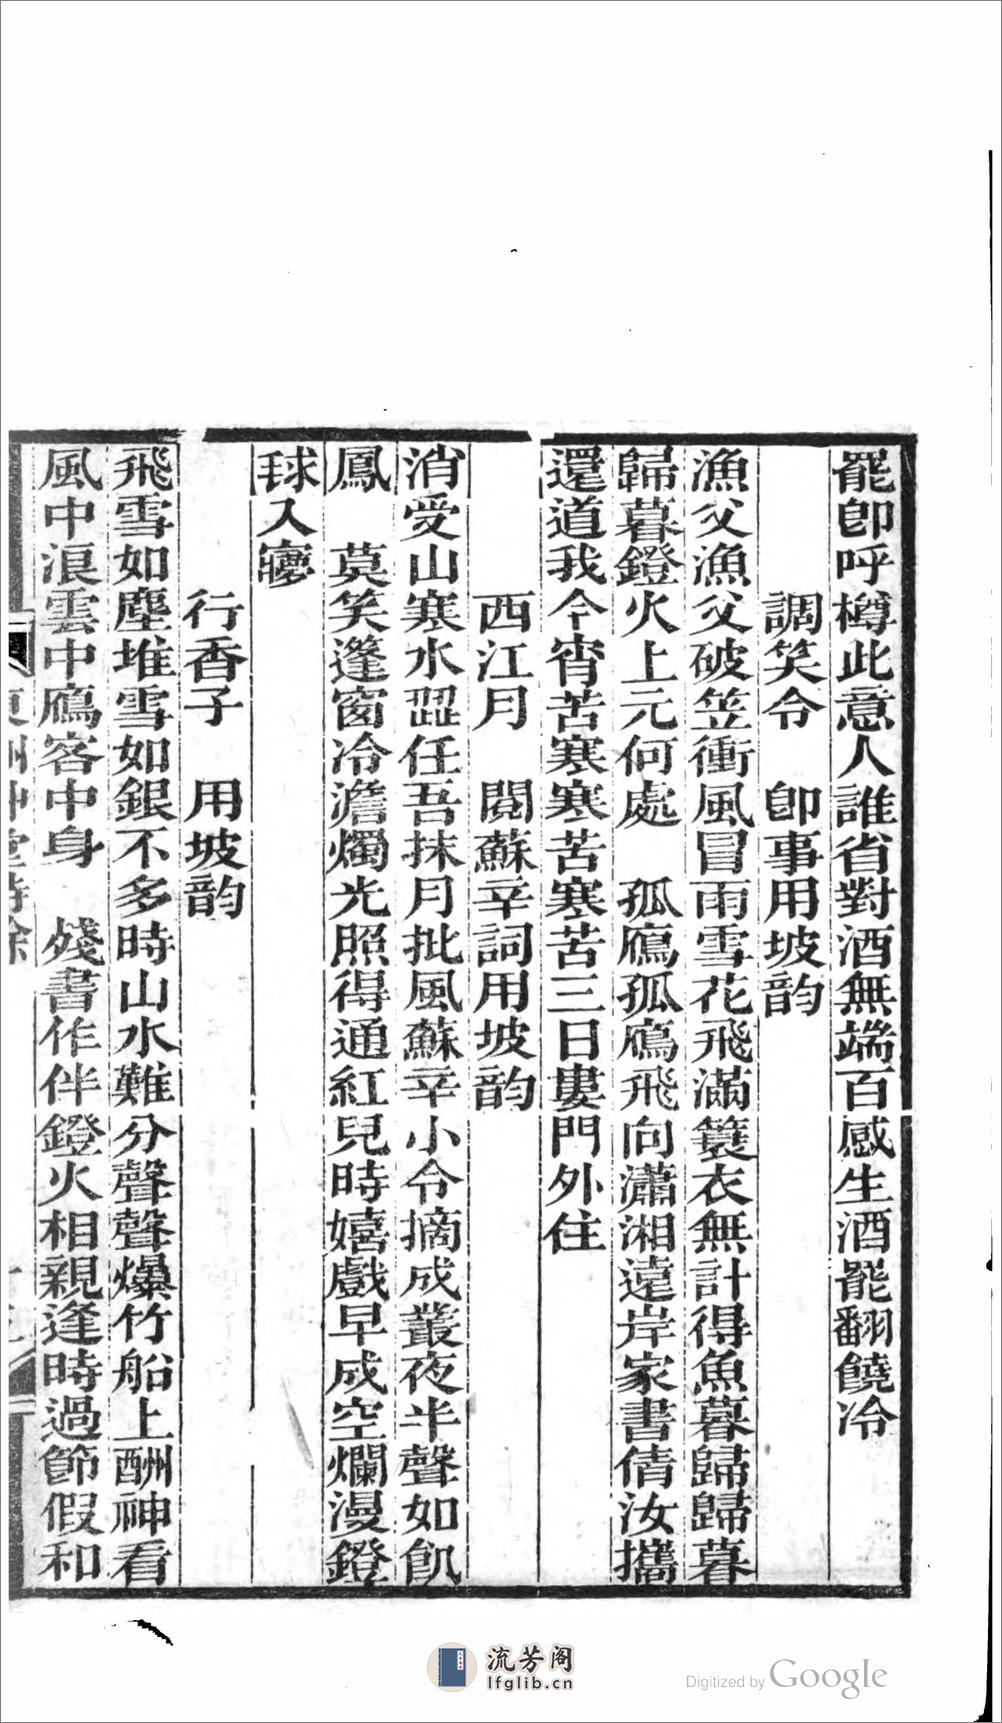 罷卽呼樽此意人誰省對酒無端百感生酒罷翻饒冷
調笑令　卽事用坡韵
漁父漁父破笠衝風冒雨雪花飛滿簑衣無計得魚暮歸歸暮
歸暮鐙火上元何處　孤鴈孤鴈飛向瀟湘遠岸家書倩汝攜
還道我今宵苦寒寒苦寒苦三日婁門外住
西江月　閱蘇辛詞用坡韵
消受山寒水澀任吾抹月批風蘇辛小令摘成叢夜半聲如飢
鳳　莫笑篷窗冷澹燭光照得通紅兒時嬉戲早成空爛漫鐙
毬入㝱
行香子　用坡韵
飛雪如塵堆雪如銀不多時山水難分聲聲爆竹船上酬神看
風中浪雲中鴈客中身　殘書作伴鐙火相親逢時過節假和
流芳阁
lfglib.cn
Digitized by Google